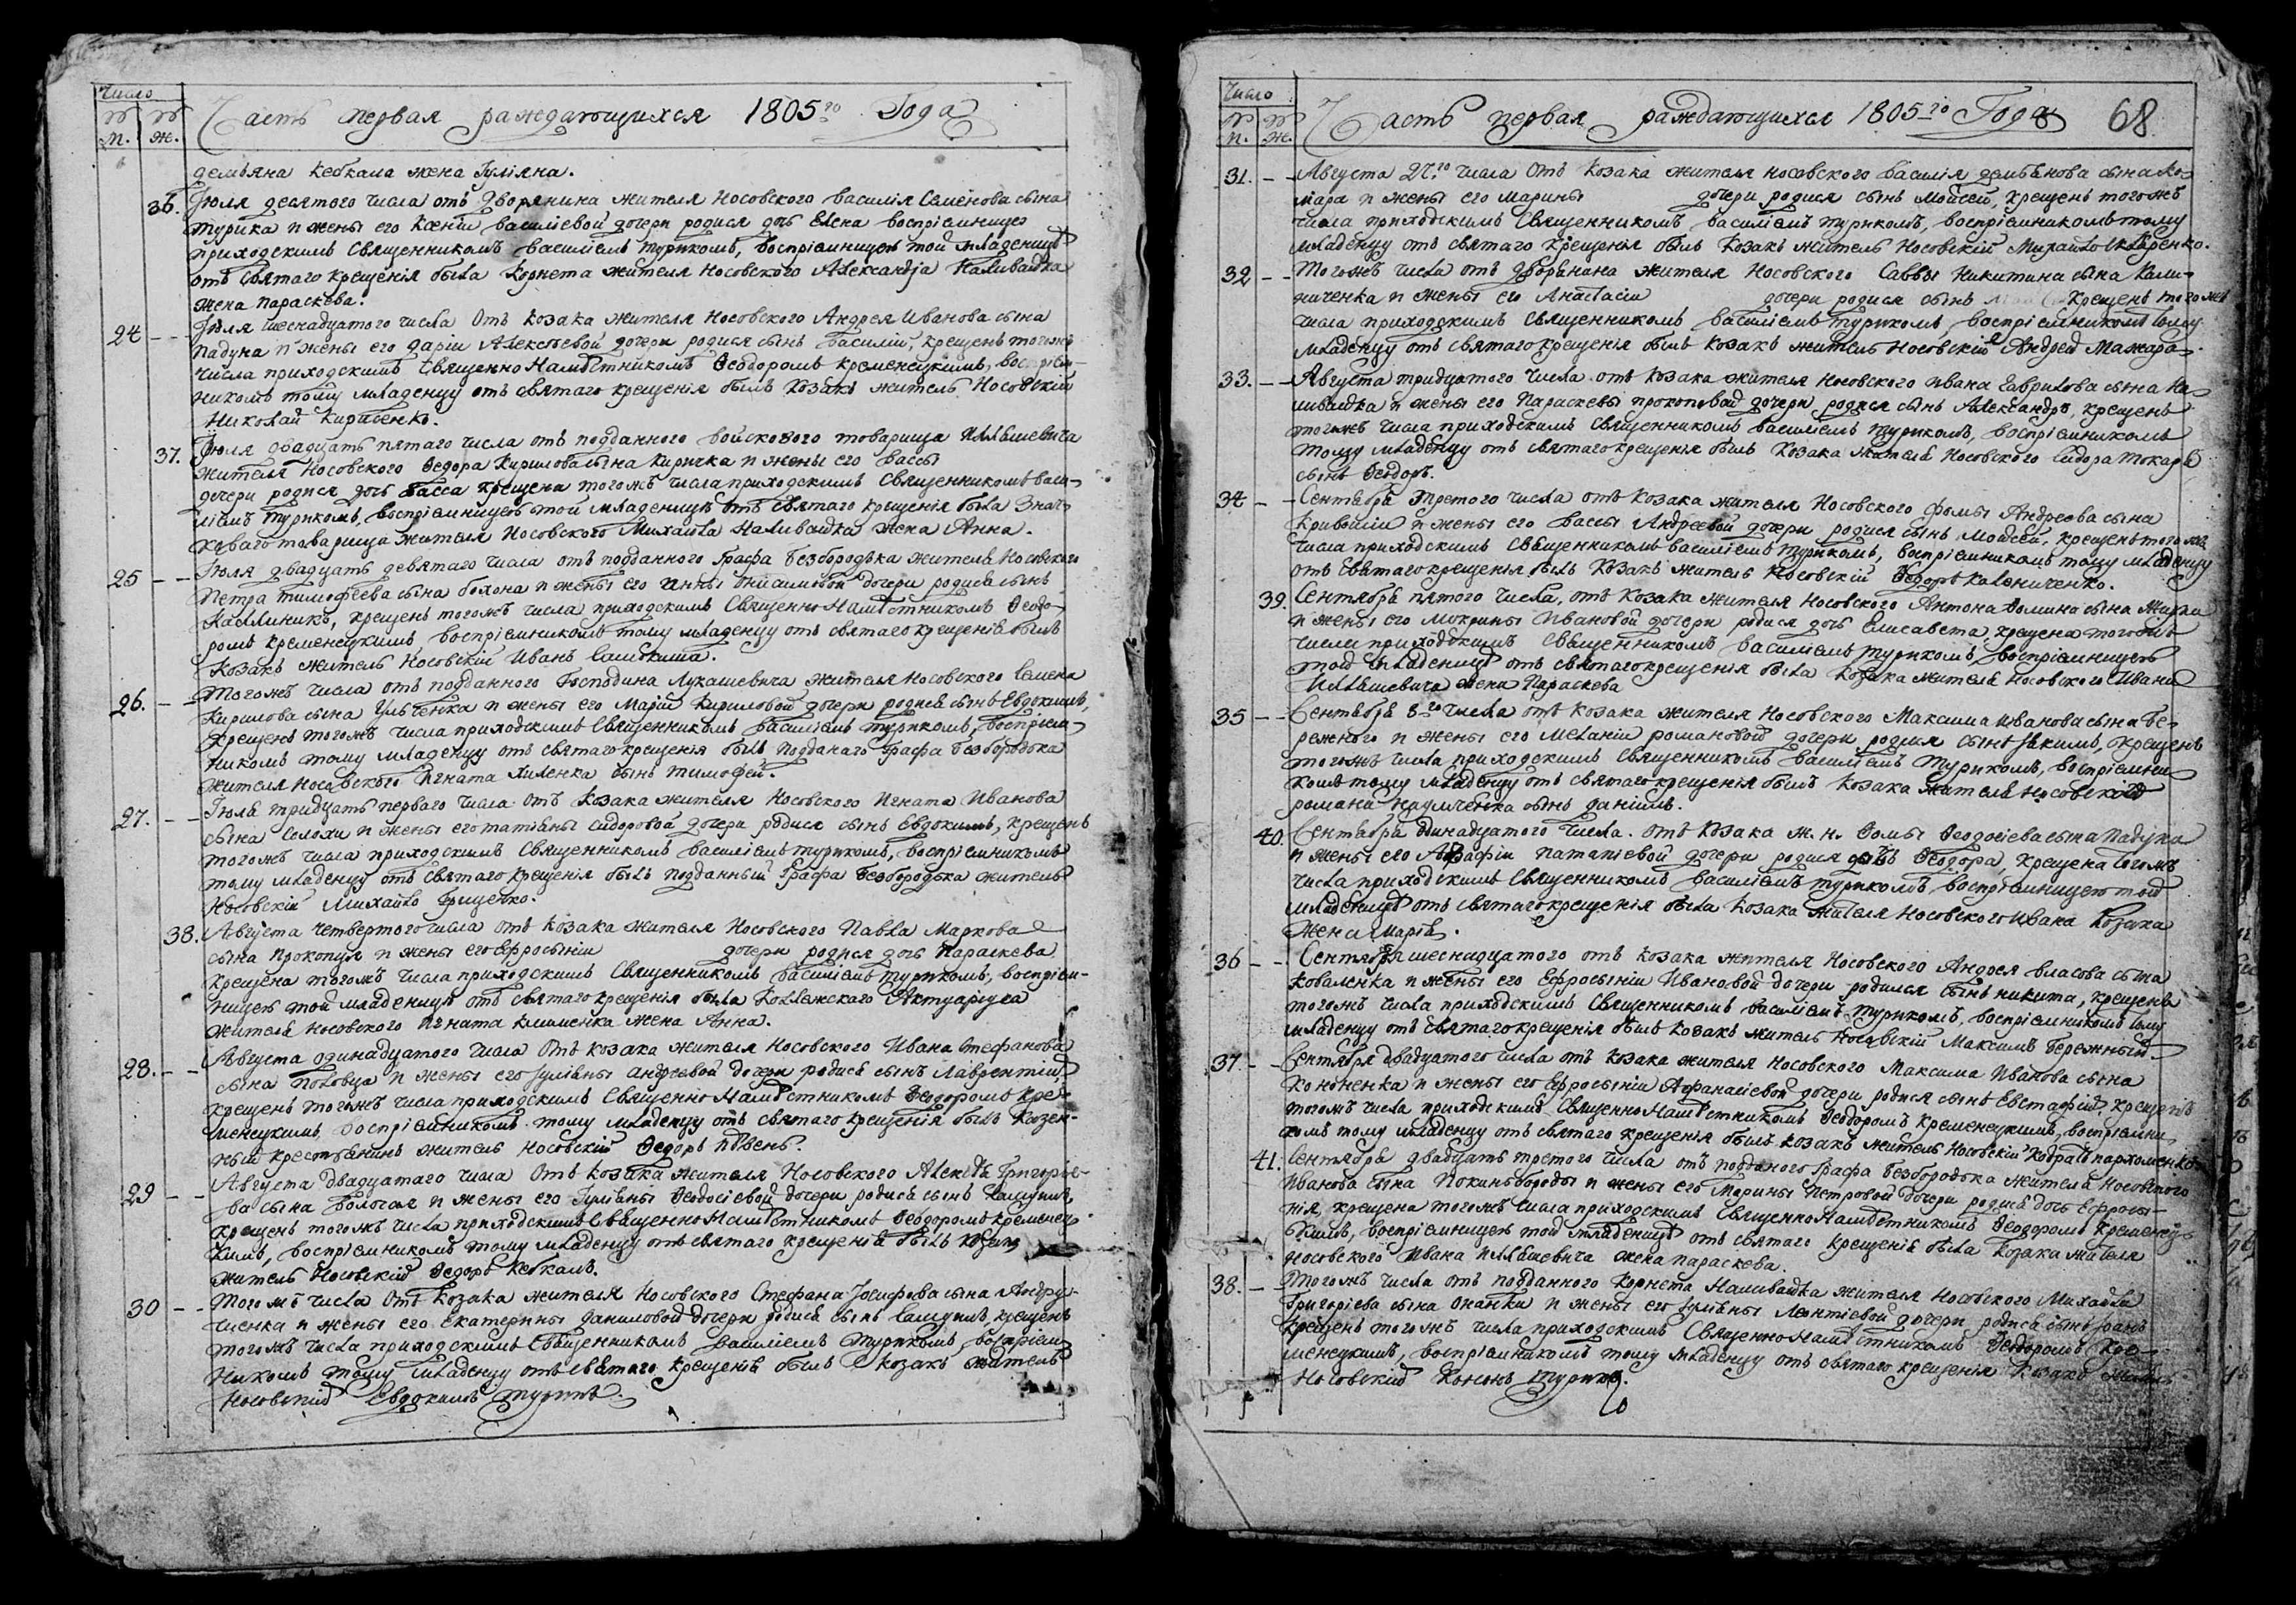 Число
м. ж.
Часть первая раждающихся 1805го Года
демьяна кебкала жена Гулiяна.
36. Iюля десятого числа отъ дворянина жителя Носовского василiя Семенова сына
турика и жены его Ксенiи василiевой дочери родися дочъ Елена воспрiемницею
приходскимъ Священникомъ василiемъ туриком, воспрiемницею той младеницы
отъ святаго крещенiя была корнета жителя Носовского Александра Наливайка
жена параскева.
24 - - Iюля шеснадцатого числа отъ козака жителя Носовского Андрея Иванова сына
падуна и жены его дарiи Алексѣевой дочери родися сынъ василiй, крещенъ тогожъ
числа приходскимъ СвященноНамѣстникомъ Феодоромъ кременецкимъ, воспрiем-
никомъ тому младенцу отъ святаго крещенiя былъ козакъ житель Носовскiй
Николай Кириенко.
37. Iюля двадцать пятаго числа отъ подданного войскового товарища Илляшевича
жителя Носовского Федора Кирилова сына Киричка и жены его вассы
дочери родися дочъ васса крещена тогожъ числа приходскимъ Священникомъ васи-
лiемъ туриком, воспрiемницею той младеницѣ отъ святаго крещенiя была Знач-
коваго товарища жителя Носовского Михайла Наливайка жена Анна.
25 - - Iюля двадцать девятаго числа отъ подданного Графа безбородька жителя Носовского
Петра тимофеева сына бохона и жены его Анны Онисимовой дочери родися сынъ
Каллиникъ, крещенъ тогожъ числа приходскимъ СвященноНамѣстникомъ Феодо-
ромъ кременецкимъ, воспрiемникомъ тому младенцу отъ святаго крещенiя былъ
козакъ житель Носовскiй Иванъ
26. - - Тогожъ числа отъ подданного Господина Лукашевича жителя Носовского Семена
Кирилова сына Ульченка и жены его Марiи Кириловой дочери родися сынъ Евдокимъ,
крещенъ тогожъ числа приходскимъ Священникомъ василiемъ туриком, воспрiем-
никомъ тому младенцу отъ святаго крещенiя былъ подданаго Графа безбородька
жителя Носовского Игната хиленка сынъ тимофей.
27. - - Iюля тридцать перваго числа отъ козака жителя Носовского Игната Иванова
сына Солохи и жены его татiяны сидоровой дочери родися сынъ Евдокимъ, крещенъ
тогожъ числа приходскимъ Священникомъ василiемъ туриком, воспрiемникомъ
тому младенцу отъ святаго крещенiя былъ подданный Графа безбородька житель
Носовскiй Михайло Гриценко.
38. Августа четвертого числа отъ козака жителя Носовского Павла Маркова
сына прокопця и жены его Ефросынiи дочери родися дочъ Параскева
крещена тогожъ числа приходскимъ Священникомъ василiемъ туриком, воспрiем-
ницею той младеницы отъ святаго крещенiя была Коллежскаго Актуарiуса
жителя Носовского Игната клименка жена Анна.
28. - - Августа одинадцатого числа отъ козака жителя Носовского Ивана Стефанова
сына половца и жены его Гулiяны андреевой дочери родися сынъ Лаврентiй,
крещенъ тогожъ числа приходскимъ СвященноНамѣстникомъ Феодоромъ Кре-
менецкимъ, воспрiемникомъ тому младенцу отъ святаго крещенiя былъ казен-
ный крестьянинъ житель Носовскiй Федоръ пѣвень.
29 - - Августа двадцатого числа отъ козака жителя Носовского Алексѣя Григорiе-
ва сына и жены его Гулiяны Феодосiевой дочери родися сынъ Самуилъ,
крещенъ тогожъ числа приходскимъ СвященноНамѣстникомъ Феодоромъ кременец-
кимъ, воспрiемникомъ тому младенцу отъ святаго крещенiя былъ козакъ
житель Носовскiй Федоръ Кебкалъ.
30 - - Тогожъ числа отъ козака жителя Носовского Стефана Iосифова сына Андру-
щенка и жены его Екатерины даниловой дочери родися сынъ Самуилъ, крещенъ
тогожъ числа приходскимъ Священникомъ василiемъ туриком, воспрiем-
никомъ тому младенцу отъ святаго крещенiя былъ козакъ житель
Носовский Евдокимъ турикъ.
Число
м. ж.
Часть первая раждающихся 1805го Года 68
31. - - Августа 27го числа отъ козака жителя Носовского василiя демьянова сына Ко-
мара и жены его Марины дочери родися сынъ Мойсей, крещенъ тогожъ
числа приходскимъ Священникомъ василiемъ туриком, воспрiемникомъ тому
младенцу отъ святаго крещенiя былъ козакъ житель Носовскiй Михайло
32 - - Тогожъ числа отъ дворянина жителя Носовского Саввы Никитина сына Кали-
ниченка и жены его Анастасiи дочери родися сынъ крещенъ тогожъ
числа приходскимъ Священникомъ василiемъ туриком, воспрiемникомъ тому
младенцу отъ святаго крещенiя былъ козакъ житель Носовскiй Андрей Мажара.
33. - - Августа тридцатого числа отъ козака жителя Носовского ивана Гаврилова сына На-
ливайка и жены его Параскевы прокоповой дочери родися сынъ Александръ, крещенъ
тогожъ числа приходскимъ Священникомъ василiемъ туриком, воспрiемникомъ
тому младенцу отъ святаго крещенiя былъ козака жителя Носовского Сидора токаря
сынъ Феодоръ.
34 - - Сентября третого числа отъ козака жителя Носовского Фомы Андреева сына
Кривошiи и жены его вассы Андреевой дочери родися сынъ Мойсей, крещенъ тогожъ
числа приходскимъ Священникомъ василiемъ туриком, воспрiемникомъ тому младенцу
отъ святаго крещенiя былъ козакъ житель Носовскiй Федоръ Калениченко.
39. Сентября пятого числа, отъ козака жителя Носовского Антона Фомина сына
и жены его Мокрины Ивановой дочери родися дочъ Елисавета, крещена тогожъ
числа приходскимъ Священникомъ василiемъ туриком, воспрiемницею
той младеницѣ отъ святаго крещенiя была козака жителя Носовского Ивана
Илляшевича жена Параскева
35 - - Сентября 8го числа отъ козака жителя Носовского Максима Иванова сына Бе-
режного и жены его Меланiи романовой дочери родися сынъ Iакимъ, крещенъ
тогожъ числа приходскимъ Священникомъ василiемъ туриком, воспрiемни-
комъ тому младенцу отъ святаго крещенiя былъ козака жителя Носовского
романа сынъ данiилъ.
40. Сентября динадцатого числа. отъ козака ж. н. Фомы Феодосiева сына Падуна
и жены его Агафiи патапiевой дочери родися дочъ Феодора, крещена тогожъ
числа приходскимъ Священникомъ василiемъ туриком, воспрiемницею той
младеницѣ отъ святаго крещенiя была козака жителя Носовского Ивана Козака
жена Марiя.
36 - - Сентября шеснадцатого отъ козака жителя Носовского Андрея власова сына
коваленка и жены его Ефросынiи Ивановой дочери родился сынъ никита, крещенъ
тогожъ числа приходскимъ Священникомъ василiемъ туриком, воспрiемникомъ тому
младенцу отъ святаго крещенiя былъ козакъ житель Носовскiй Максимъ Бережный
37. - - Сентября двадцатого числа отъ козака жителя Носовского Максима Иванова сына
Кононенка и жены его Ефросынiи Афанасiевой дочери родися сынъ Евстафiй, крещенъ
тогожъ числа приходскимъ СвященноНамѣстникомъ Феодоромъ Кременецкимъ, воспрiемни-
комъ тому младенцу отъ святаго крещенiя былъ козакъ житель Носовскiй Кодратъ пархоменко.
41. Сентября двадцать третого числа отъ подданого Графа безбородька жителя Носовского
Иванова сына Покиньбороды и жены его Марины Петровой дочери родися дочъ Ефросы-
нiя, крещена тогожъ числа приходскимъ СвященноНамѣстникомъ Феодоромъ Кременец-
кимъ, воспрiемницею той младеницѣ отъ святаго крещенiя была козака жителя
Носовского Ивана Илляшевича жена параскева.
38. - - Тогожъ числа отъ подданного Корнета Наливайка жителя Носовского Михайла
Григорiева сына Онанки и жены его Гулiяны Леонтiевой дочери родися сынъ Iоанъ
крещенъ тогожъ числа приходскимъ СвященноНамѣстникомъ Феодоромъ Кре-
менецкимъ, воспрiемникомъ тому младенцу отъ святаго крещенiя козакъ житель
Носовский Кононъ турикъ.